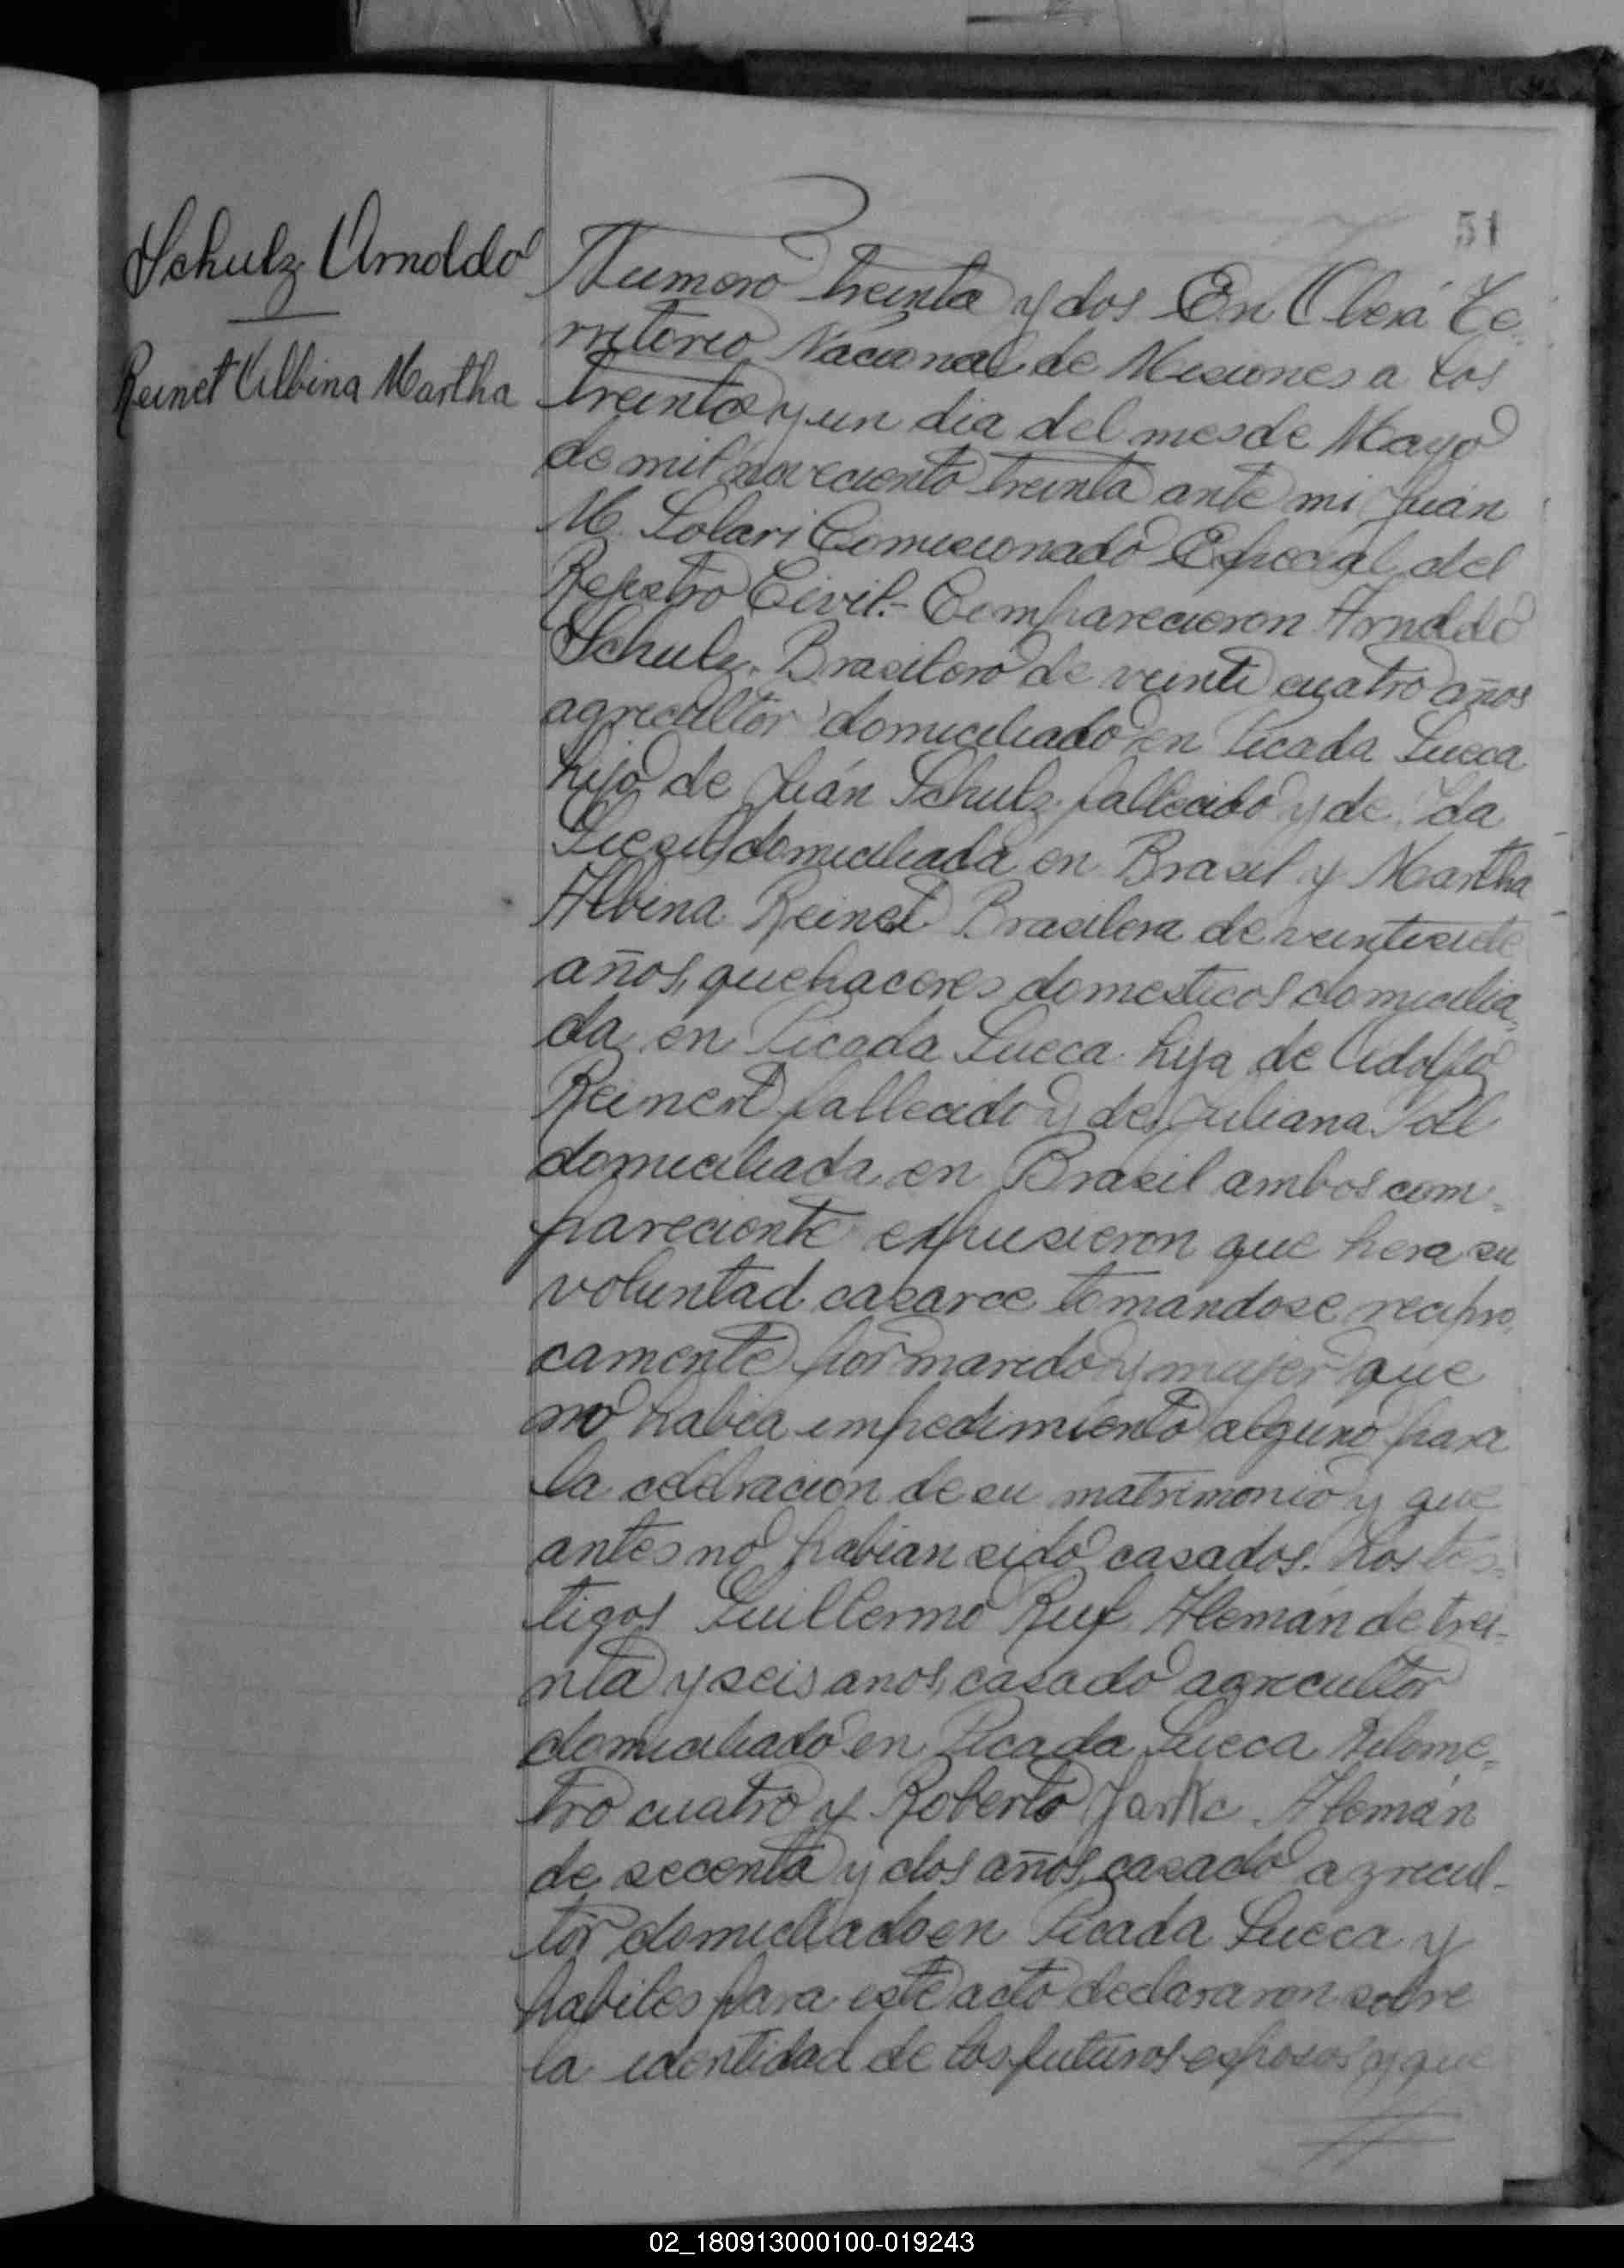 51
Schulz Arnoldo
Reinet Albina Martha
Numero treinta y dos En Oberá Te-
rritorio Nacional de Misiones a los
treinta y un dia del mes de Mayo
de mil noveciento treinta ante mi Juán
M. Solari Comisionado Especial del
Rejistro Civil.- Comparecieron Arnoldo
Schulz. Brasilero de veinti cuatro años
agricultor domiciliado en Picada Sueca
hijo de Juán Schulz fallecido y de Ida
domiciliada en Brasil y Martha
Albina Reinet Brasilera de veintisiete
años, quehaceres domesticos domicilia-
da en Picada Sueca hija de Adolfo
Reinert fallecido y de Juliana
domiciliada en Brasil ambos com-
pareciente expusieron que hera su
voluntad casarce tomandose recipro-
camente por marido y mujer que
no habia impedimiento alguno para
la celebracion de su matrimonio y que
antes no habian sido casados. Los tes-
tigos Guillermo Ruf Alemán de trei-
nta y seis anos, casado agricultor
domiciliado en Picada Sueca Kilome-
tro cuatro y Roberto Jarke Alemán
de secenta y dos años, casado agricul-
tor domiciliado en Picada Sueca y
habiles para este acto declararon sobre
la identidad de los futuros esposos y que
02_180913000100-019243